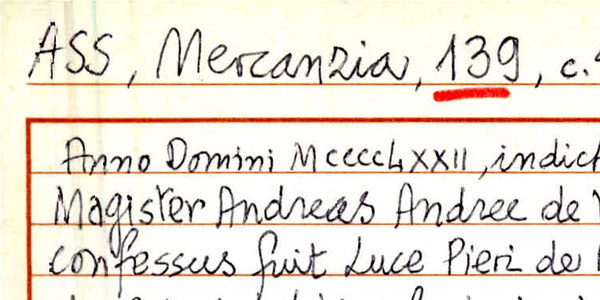 ASS, Mercanzia, 139, c.
Anno Domini MccccLxxII, indict
Magister Andreas Andree de
confessus fuit Luce Pieri de